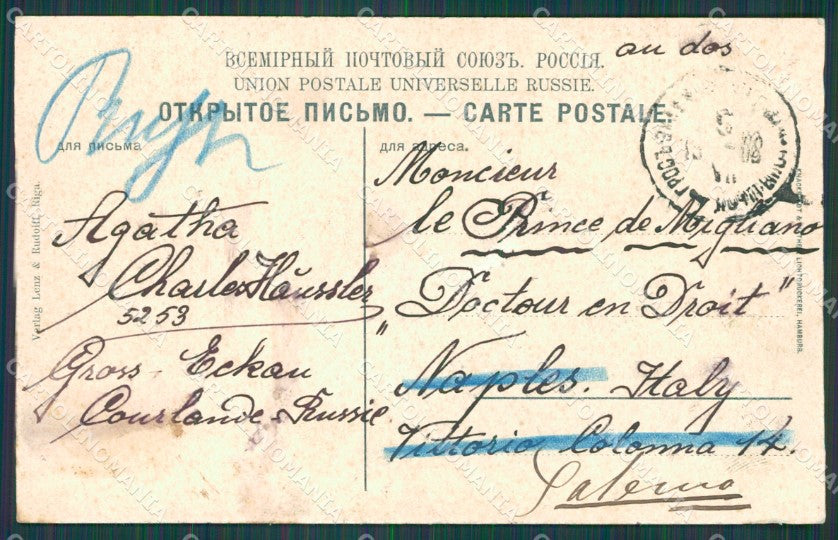 ВСЕМІРНЫЙ ПОЧТОВЫЙ СОЮЗЪ. РОССІЯ.
au dos
UNION POSTALE UNIVERSELLE RUSSIE.
ОТКРЫТОЕ ПИСЬМО. — CARTE POSTALE.
для письма
для адреса.
Verlag Lenz & Rudolff, Riga.
Agatha
Charles Häussler
5253
Gross-Eckau
Courlande-Russie
Moncieur
le Prince de Migliano
"Doctour en Droit"
Naples. Italy
Vittoria Colonna 14.
Palermo
LICHTDRUCKEREI, HAMBURG.
CARTOLINOMANIA